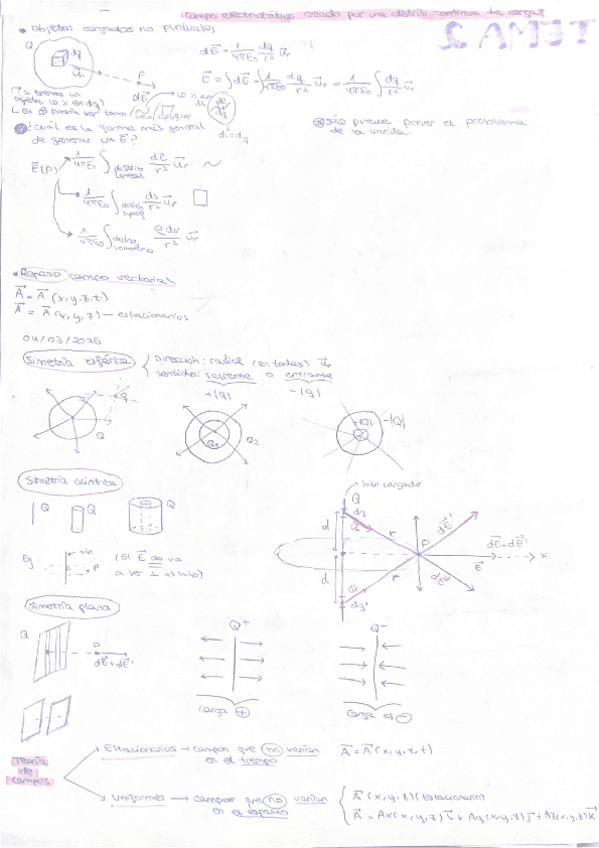 Campo electrostático creado por una distrib. continua de cargas
TEMA 2
• Objetos cargados no puntuales
Q dq
u⃗r
P
dE⃗
dE⃗ = 1/4πε₀ dq/r² u⃗r
E⃗ = ∫dE⃗ = ∫ 1/4πε₀ dq/r² u⃗r = 1/4πε₀ ∫ dq/r² u⃗r
¿cuál es la forma más general
de generar un E⃗?
solo puede poner el problema
de la varilla.
E⃗(P)
1/4πε₀ ∫distrib lineal dl/r² u⃗r
1/4πε₀ ∫distrib superf ds/r² u⃗r
1/4πε₀ ∫distrib volumétrica ρdv/r² u⃗r
• Repaso campo vectorial
A⃗ = A⃗ (x,y,z,t)
A⃗ = A⃗ (x,y,z) — estacionarios
04/03/2026
Simetría esférica
Dirección: radial (en todas) u⃗r
sentido: saliente o entrante
+|q| -|q|
q
Q
Q₁ Q₂
+|Q| -|Q|
Simetría cilíndrica
Q Q Q
Ej
hilo
P
(El E⃗ va
a ser ⊥ al hilo)
hilo cargado
Q
dq
d
r
P
dE⃗'
dE⃗+dE⃗'
E⃗
x
d
r
dE⃗
dq'
Simetría plana
Q
P
dE⃗+dE⃗'
Q⁺
Carga ⊕
Q⁻
Carga es ⊖
Teoría
de
campos
Estacionarios → campos que no varían
en el tiempo
A⃗=A⃗ (x,y,z,t)
Uniformes → campos que no varían
en el espacio
A⃗ (x,y,z) (Estacionario)
A⃗ = Ax(x,y,z)i⃗ + Ay(x,y,z)j⃗ + Az(x,y,z)k⃗